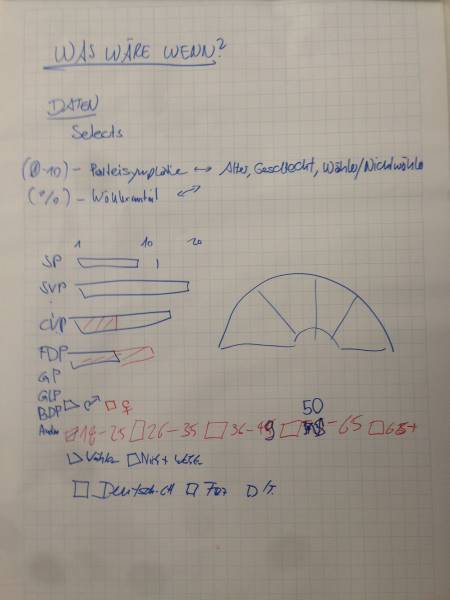 WAS WÄRE WENN?
DATEN
Selects
(0-10) - Parteisympathie ↔ Alter, Geschlecht, Wähler/Nichtwähler
(%) - Wähleranteil
1 10 20
SP
SVP
CVP
FDP
GP
GLP
BDP ♂ ♀
Andere 18-25 26-35 36-49 50-65 65+
Wähler Nicht Wähler
Deutsch-CH It.